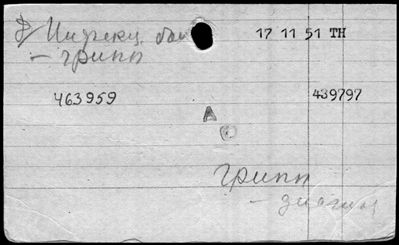 Инфекц. бол 17 11 51 TH
– грипп
463959 439797
A
грипп
– диагноз